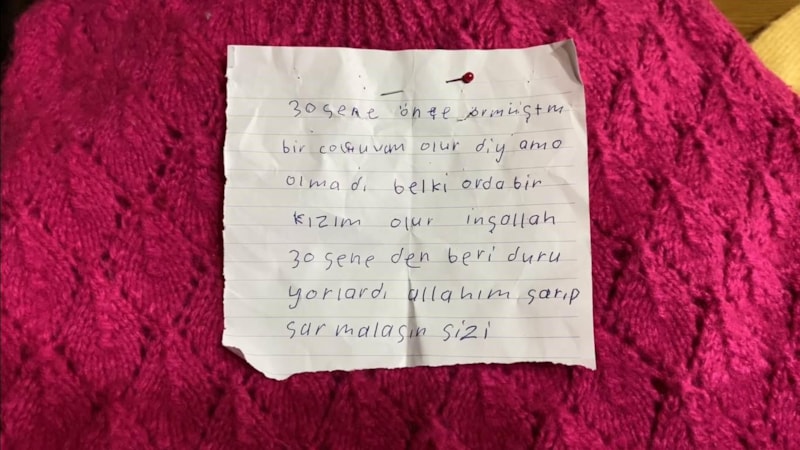 30 sene önce örmüştm
bir cocuğuvam olur diy ama
olmadı belki orda bir
kızım olur inşallah
30 sene den beri duru
yorlardı allahım sarıp
sarmalasın sizi